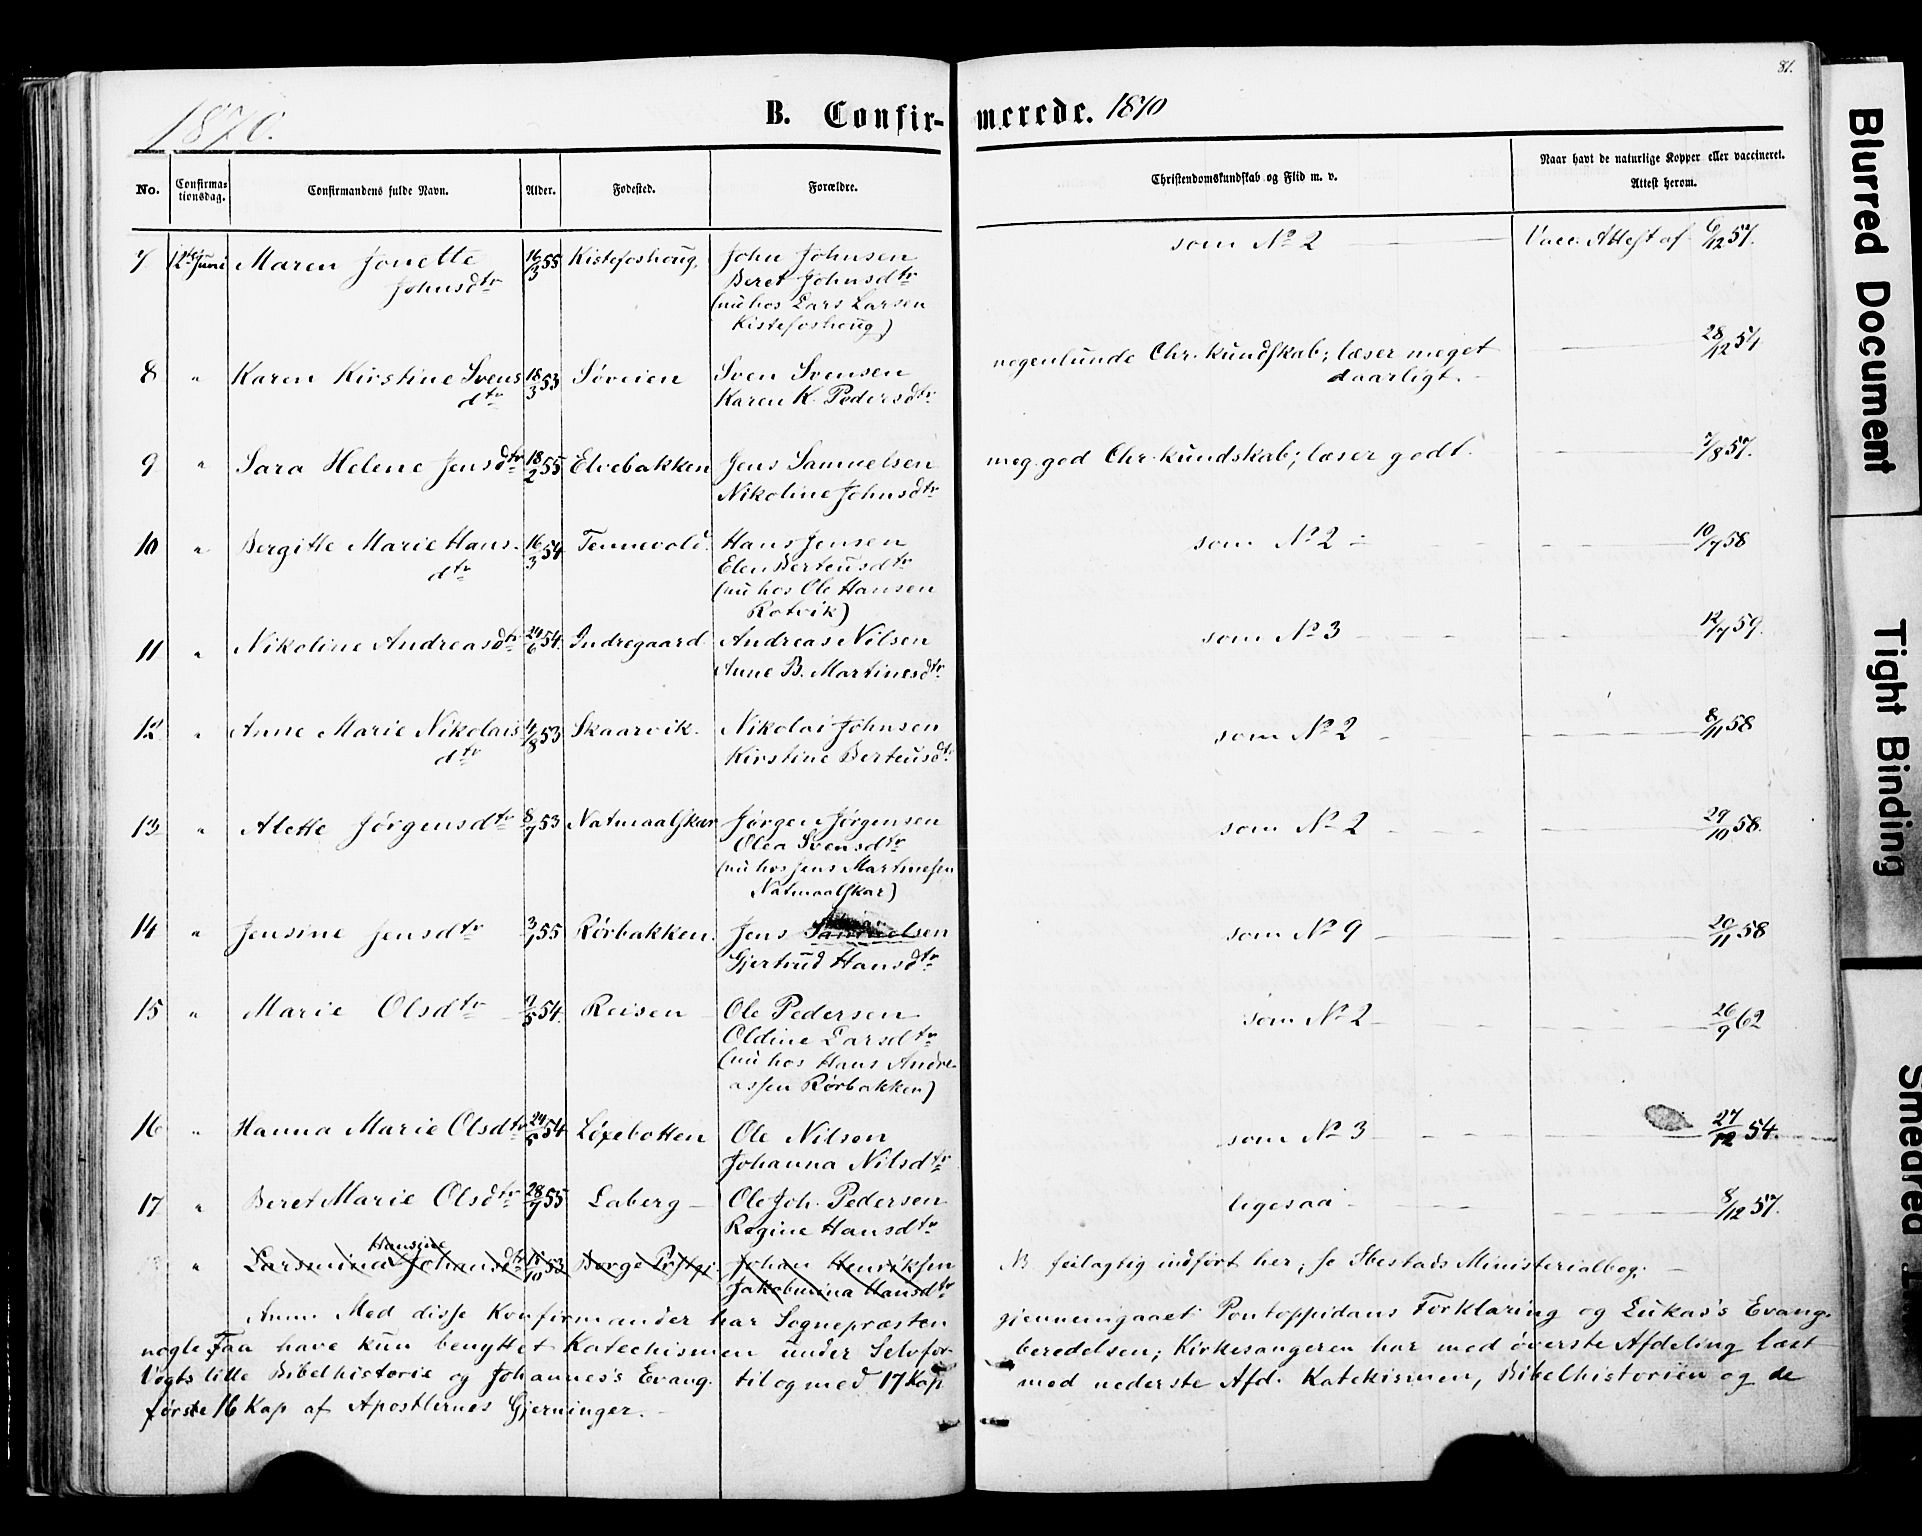 81.
1870.
B. Confirmerede. 1870
No.
Confirmationsdag.
Confirmandens fulde Navn.
Alder.
Fødested.
Forældre.
Christendomskundskab og Flid m. v.
Naar havt de naturlige Kopper eller vaccineret.
Attest herom.
7 12te Juni Maren Jonette 16/3 55 Kistefoshoug, John Johnsen som No 2 Vacc. Attest af 6/12 57.
Johnsdtr Beret Johnsdtr
(nu hos Lars Larsen
Kistefoshoug)
8 " Karen Kirstine Svens 18/3 53 Søveien Sven Svensen nogenlunde Chr. kundskab; læser meget 28/12 54
dtr Karen K. Pedersdtr daarligt.
9 " Sara Helene Jensdtr 18/2 55 Elvebakken Jens Samuelsen meg. god Chr. kundskab; læser godt. 7/8 57.
Nikoline Johnsdtr
10 " Bergitte Marie Hans- 16/3 54 Tennevold. Hans Jensen som No 2 10/7 58
dtr Elen Berteusdtr
(nu hos Ole Hansen
Rotvik)
11 " Nikoline Andreasdtr 24/6 54. Indregaard Andreas Nilsen som No 3 12/7 59.
Anne B. Martinesdtr
12 " Anne Marie Nikolais 4/8 53 Skaarvik. Nikolai Johnsen som No 2 8/11 58
dtr Kirstine Berteusdtr
13 " Alette Jørgensdtr 8/7 53 Natmaalskar Jørgen Jørgensen som No 2 29/10 58.
Olea Svensdtr
(nu hos Jens Martinesen
Natmaalskar)
14 " Jensine Jensdtr 3/1 55 Rørbakken. Jens som No 9 20/11 58
Gjertrud Hansdtr
15 " Marie Olsdtr 1/5 54. Reisen Ole Pedersen som No 2 26/9 62
Oldine Larsdtr
(nu hos Hans Andre-
assen Rørbakken)
16 " Hanna Marie Olsdtr 24/5 54 Løxebotten Ole Nilsen som No 3 27/12 54.
Johanna Nilsdtr
17 " Beret Marie Olsdtr 28/9 55 Laberg Ole Joh. Pedersen ligesaa 8/12 57.
Regine Hansdtr
Hansine
" Larsmina Johansdtr 53 Borge Præstgj. Johan Henriksen NB feilagtig indført her; se Ibestads Ministerialbog.
Jakobmina Hansdtr
Anm. Med disse Konfirmander har Sognepræsten gjennemgaaet Pontoppidans Forklaring og Lukas's Evang.
nogle Faa have kun benyttet Katechismen under Selvfor- beredelsen; Kirkesangeren har med øverste Afdeling læst
Vogts lille Bibelhistorie og Johannes's Evang. til og med 17 Kap med nederste Afd. Katekismen, Bibelhistorien og de
første 16 Kap af Apostlernes Gjerninger.
Blurred Document
Tight Binding
Smeared